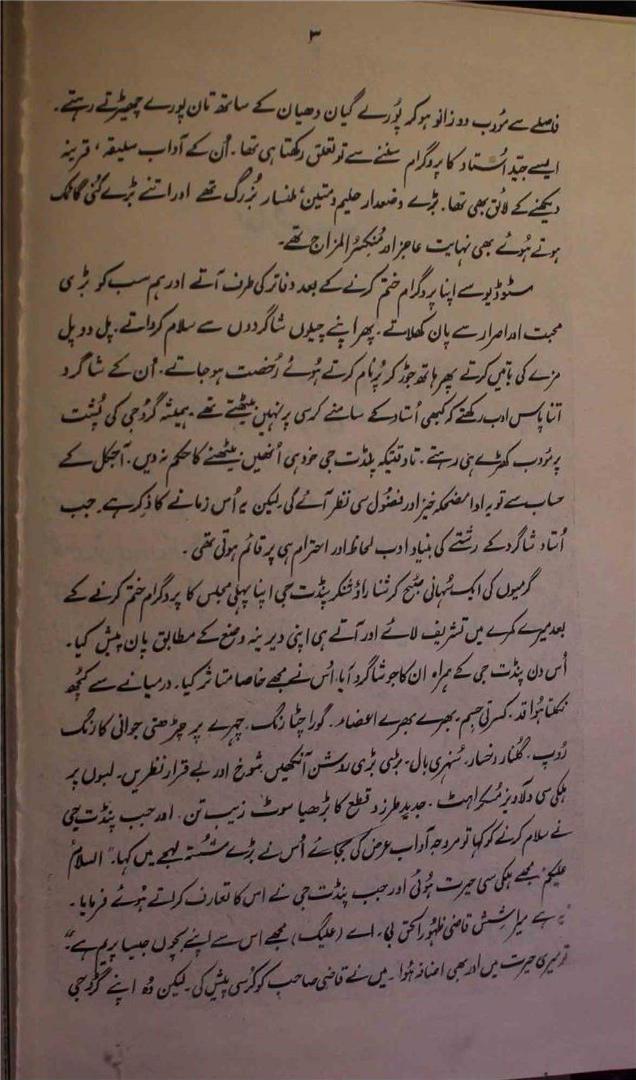 ۳
فاصلے سے مؤدب دو زانو ہو کر پُورے گیان دھیان کے ساتھ تان پورے چھیڑتے رہتے۔
ایسے جیّد اُستاد کا پروگرام سننے سے تو تعلق رکھتا ہی تھا۔ اُن کے آداب سلیقہ، قرینہ
دیکھنے کے لائق بھی تھا۔ بڑے وضعدار حلیم و متین، ملنسار بُزرگ تھے اور اتنے بڑے گُنی گائک
ہوتے ہُوئے بھی نہایت عاجز اور مُنکسرُ المزاج تھے۔
سٹوڈیو سے اپنا پروگرام ختم کرنے کے بعد دفاتر کی طرف آتے اور ہم سب کو بڑی
محبت اور اصرار سے پان کھلاتے۔ پھر اپنے چیلوں شاگردوں سے سلام کرواتے۔ پل دو پل
مزے کی باتیں کرتے پھر ہاتھ جوڑ کر پرنام کرتے ہُوئے رخصت ہو جاتے۔ اُن کے شاگرد
اتنا پاس ادب رکھتے کہ کبھی اُستاد کے سامنے کرسی پر نہیں بیٹھتے تھے۔ ہمیشہ گُرو جی کی پُشت
پر مؤدب کھڑے ہی رہتے۔ تاوقتیکہ پنڈت جی خود ہی اُنھیں بیٹھنے کا حکم نہ دیں۔ آجکل کے
حساب سے تو یہ ادا مضحکہ خیز اور فضول سی نظر آئے گی لیکن یہ اُس زمانے کا ذکر ہے جب
اُستاد شاگرد کے رشتے کی بنیاد ادب لحاظ اور احترام ہی پر قائم ہوتی تھی۔
گرمیوں کی ایک سُہانی صُبح کرشنا راؤ شنکر پنڈت جی اپنا پہلی مجلس کا پروگرام ختم کرنے کے
بعد میرے کمرے میں تشریف لائے اور آتے ہی اپنی دیرینہ وضع کے مطابق پان پیش کیا۔
اُس دن پنڈت جی کے ہمراہ ان کا جو شاگرد آیا، اُس نے مجھے خاصا متاثر کیا۔ درمیانے سے کُچھ
نکلتا ہُوا قد۔ کسرتی جسم۔ بھرے بھرے اعضاء۔ گورا چٹا رنگ۔ چہرے پر چڑھتی جوانی کا رنگ
رُوپ۔ گلنار رخسار۔ سُنہری بال۔ بڑی بڑی روشن آنکھیں شوخ اور بے قرار نظریں۔ لبوں پر
ہلکی سی دلآویز مُسکراہٹ۔ جدید طرز و قطع کا بڑھیا سوٹ زیب تن۔ اور جب پنڈت جی
نے سلام کرنے کو کہا تو مروجہ آداب عرض کی بجائے اُس نے بڑے شُستہ لہجے میں کہا۔ "السلامُ
علیکم" مجھے ہلکی سی حیرت ہُوئی اور جب پنڈت جی نے اس کا تعارف کراتے ہُوئے فرمایا۔
"یہ ہے میرا شِش قاضی ظہورُ الحق بی۔ اے (علیگ) مجھے اس سے اپنے بچوں جیسا پریم ہے"
تو میری حیرت میں اور بھی اضافہ ہُوا۔ میں نے قاضی صاحب کو کُرسی پیش کی۔ لیکن وُہ اپنے گُرُو جی